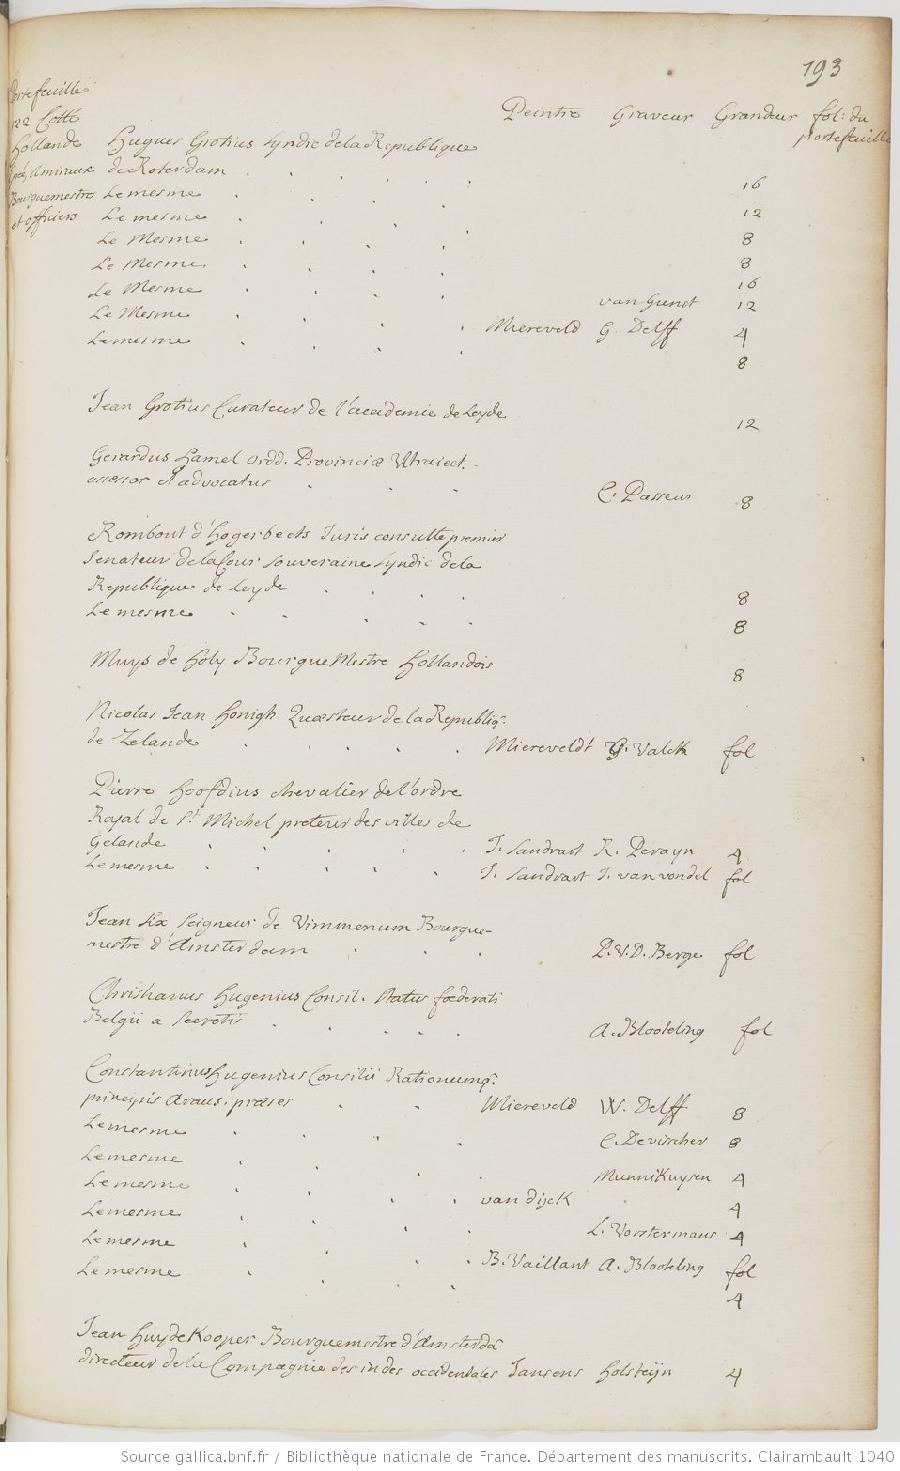 193
Portefeuille
122 Cotté
Hollande
Amiraux
Bourguemestre
et officiers
Peintre Graveur Grandeur fol: du
portefeuille
Hugues Grotius Syndic de la Republique
de Roterdam . . . . . 16
Le mesme . . . . . 12
Le mesme . . . . . 8
Le Mesme . . . . . 8
Le Mesme . . . . . 16
Le Mesme . . . . van Gunst 12
Le Mesme . . . . Miereveld G. Delff 4
Le mesme . . . . 8
Jean Grotius Curateur de l'academie de Leyde 12
Gerardus Hamel ordd. Provinciæ Ultraject.
assessor et advocatus . . . C. Passeus 8
Rombout d'hogerbeets Jurisconsulte premier
Senateur de la Cour Souveraine Syndic de la
Republique de Leyde . . . . 8
Le mesme . . . . . 8
Muys de Holy Bourgue Mestre Hollandois 8
Nicolas Jean Honigh Quæsteur de la Republiq.
de Zelande . . . . . Miereveldt G. Valck fol
Pierre Hoofdius chevalier de l'ordre
Royal de St. Michel preteur des villes de
Gelande . . . . . J. Sandrart R. Persyn 4
Le mesme . . . . . J. Sandrart J. van vondel fol
Jean Six Seigneur de Vimmenum Bourgue-
mestre d'Amsterdam . . . P. V. D. Berge fol
Christianus Hugenius Consil. Status foederati
Belgii a Secretis . . . . A. Blooteling fol
Constantinus Hugenius Consilii Rationumq.
principis Araus. præses . . Miereveld W. Delff 8
Le mesme . . . . C. De visscher 8
Le mesme . . . . Munnikuysen 4
Le mesme . . . . van dijck . 4
Le mesme . . . . L. Vorstermans 4
Le mesme . . . . B. Vaillant A. Blooteling fol
Le mesme . . . . 4
Jean Huydekooper Bourguemestre d'Amsterdã
directeur de la Compagnie des indes occidentales Jansens Holsteijn 4
Source gallica.bnf.fr / Bibliothèque nationale de France. Département des manuscrits. Clairambault 1040